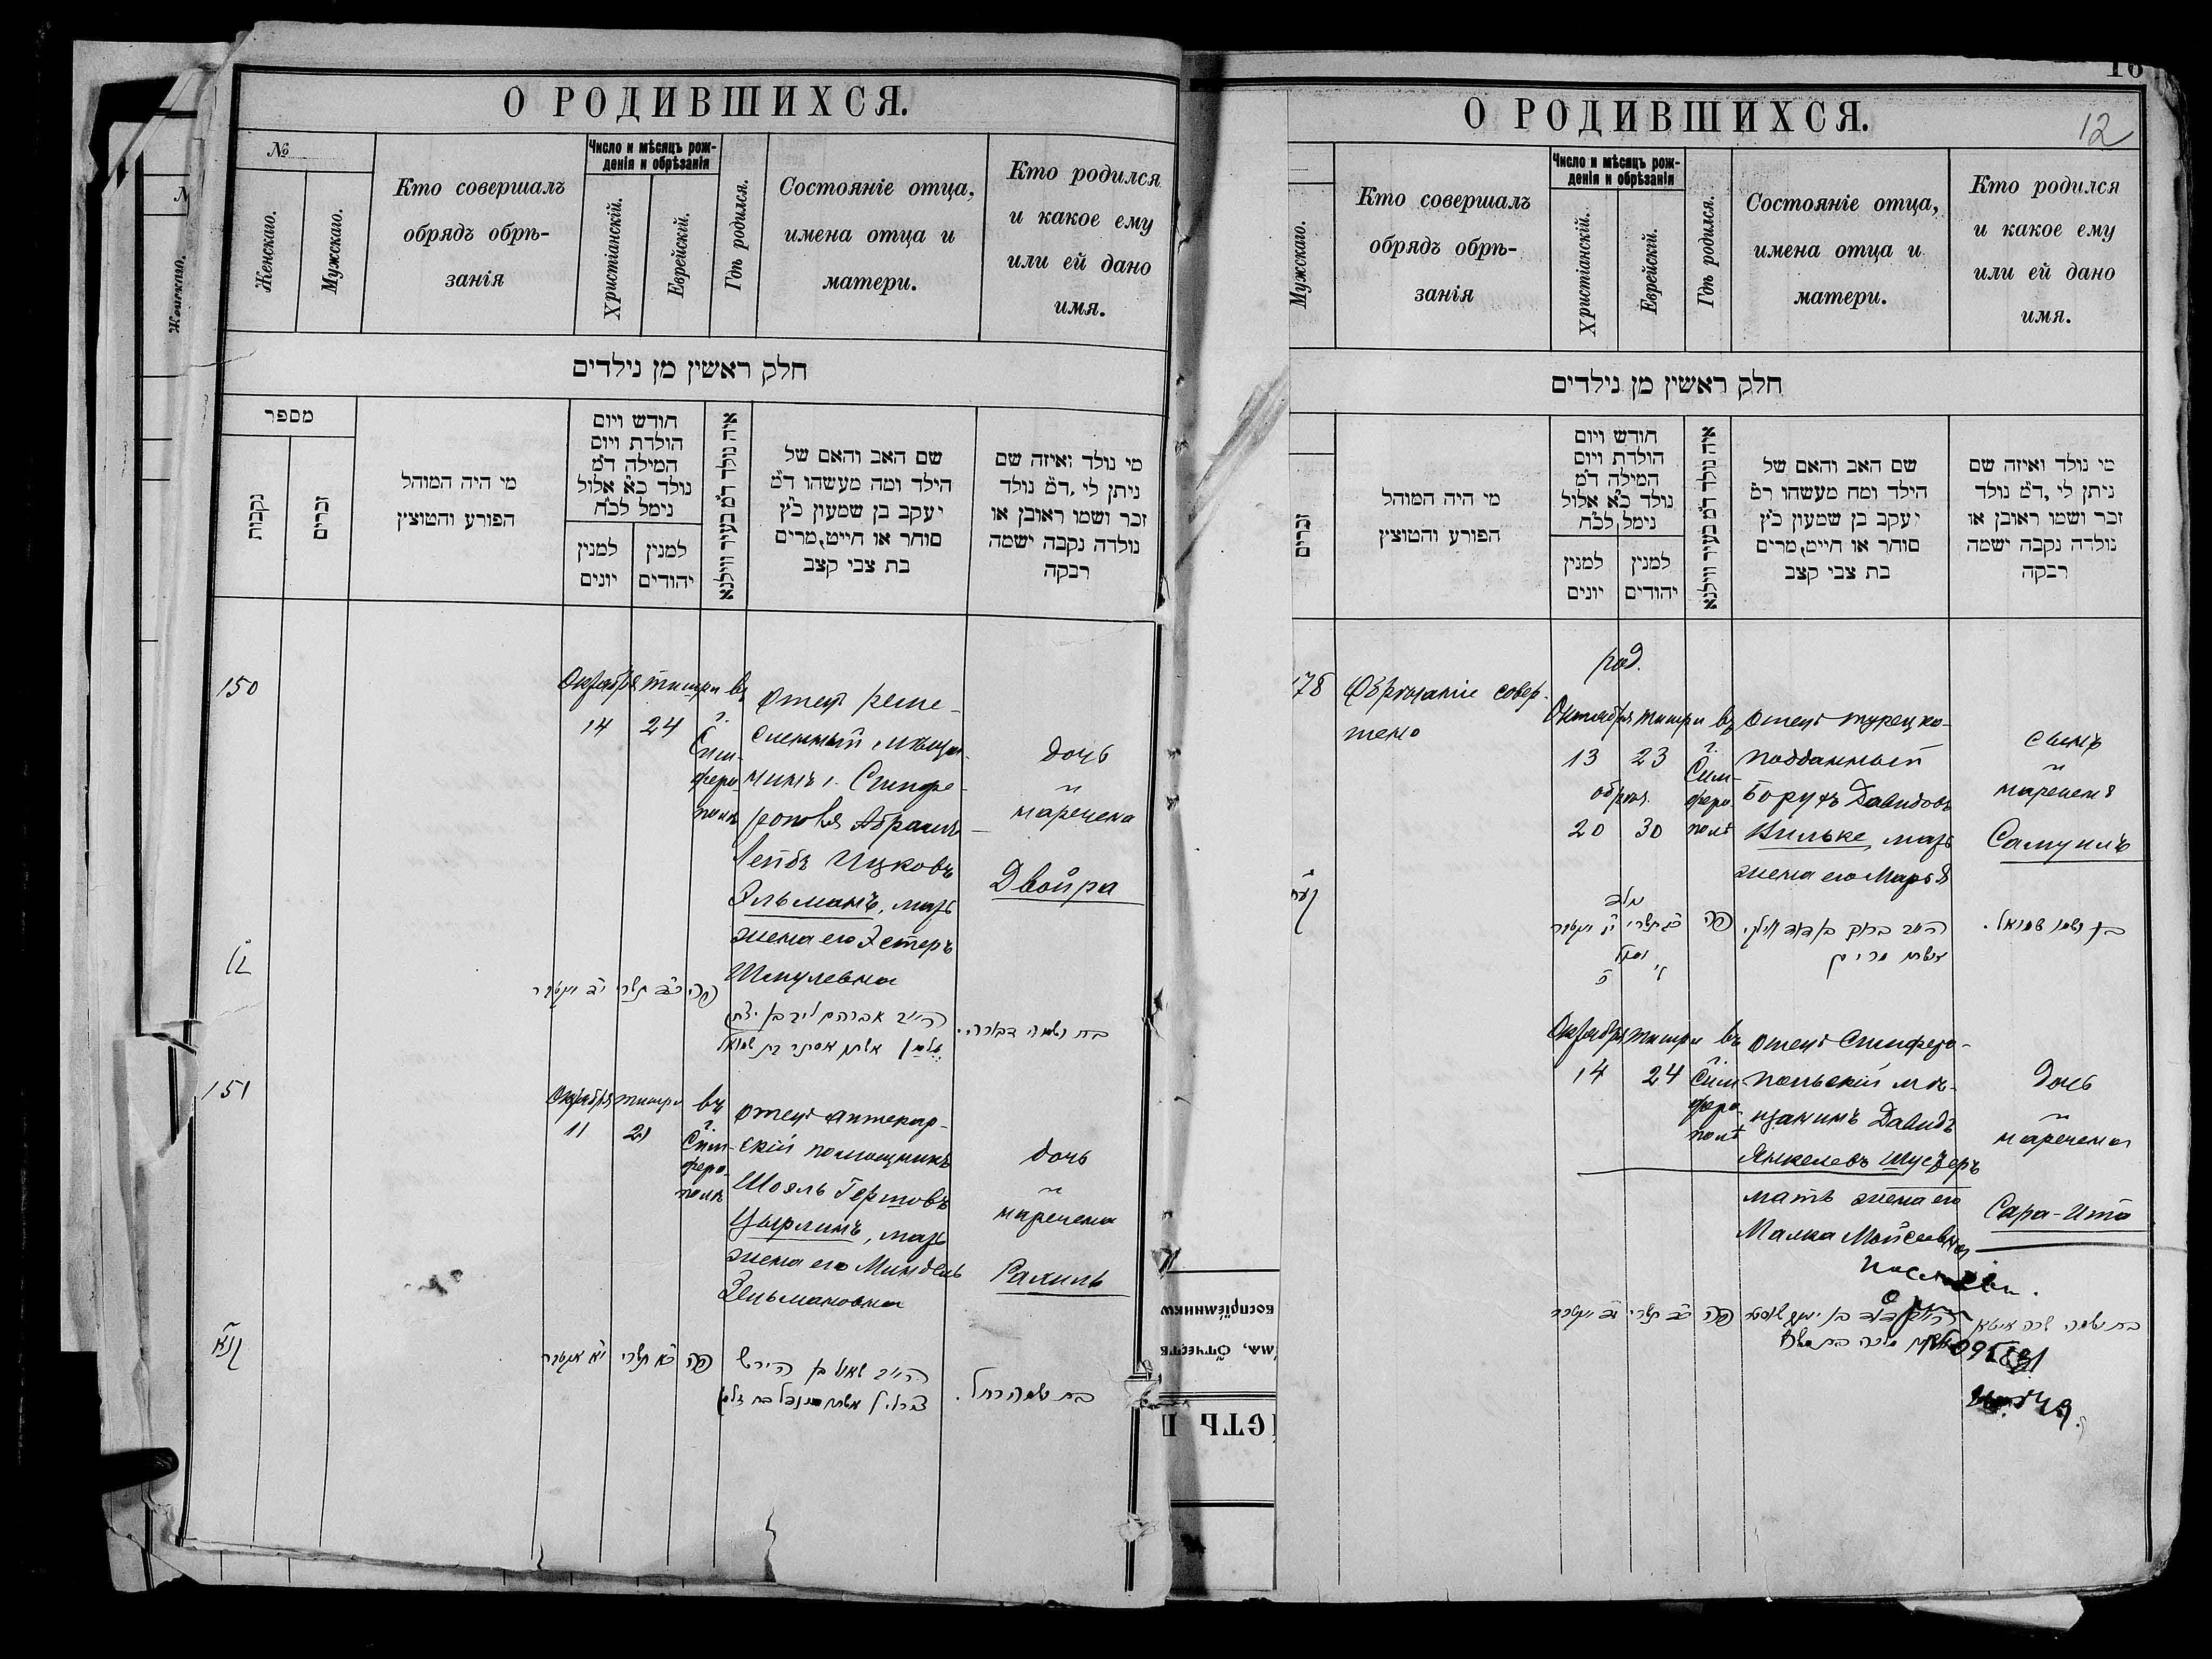 О РОДИВШИХСЯ.
№
Женскаго.
Мужскаго.
Кто совершалъ
обрядъ обрѣ-
занія
Число и мѣсяцъ рож-
денія и обрѣзанія
Христіанскій.
Еврейскій.
Гдѣ родился.
Состояніе отца,
имена отца и
матери.
Кто родился
и какое ему
или ей дано
имя.
חלק ראשין מן נילדים
מספר
נקבות
זכרים
מי היה המוהל
הפורע והמוצץ
חודש ויום
הולדת ויום
המילה ד״מ
נולד כ״א אלול
נימל לכ״ח
למנין
יונים
למנין
יהודים
איה נולד ד״מ בעיר ווילנא
שם האב והאם של
הילד ומה מעשהו ד״מ
יעקב בן שמעון כ״ץ
סוחר או חייט, מרים
בת צבי קצב
מי נולד ואיזה שם
ניתן לי, ד״מ נולד
זכר ושמו ראובן או
נולדה נקבה ושמה
רבקה
150
Октября Тишри въ
14 24
г.
Сим-
феро-
полѣ
Отецъ реме-
сленный мѣща-
нинъ г. Симфе-
рополя Абрамъ
Лейбъ Ицковъ
Эльманъ, мать
жена его Эстеръ
Шмулевна
дочь
наречена
Двойра
ק״נ
פה כ״ד תשרי י״ד אקטובר
151
Октября Тишри въ
11 21
г.
Сим-
феро-
полѣ
Отецъ аптекар-
скій помощникъ
Шоэль Гершовъ
Цырлинъ, мать
жена его Миндель
Зельмановна
дочь
наречена
Рахиль
קנ״א
פה כ״א תשרי י״א אקטובר
בת ושמה רחל.
О РОДИВШИХСЯ.
12
Мужскаго.
Кто совершалъ
обрядъ обрѣ-
занія
Число и мѣсяцъ рож-
денія и обрѣзанія
Христіанскій.
Еврейскій.
Гдѣ родился.
Состояніе отца,
имена отца и
матери.
Кто родился
и какое ему
или ей дано
имя.
חלק ראשין מן נילדים
זכרים
מי היה המוהל
הפורע והמוצץ
חודש ויום
הולדת ויום
המילה ד״מ
נולד כ״א אלול
נימל לכ״ח
למנין
יונים
למנין
יהודים
איה נולד ד״מ בעיר ווילנא
שם האב והאם של
הילד ומה מעשהו ד״מ
יעקב בן שמעון כ״ץ
סוחר או חייט, מרים
בת צבי קצב
מי נולד ואיזה שם
ניתן לי, ד״מ נולד
זכר ושמו ראובן או
נולדה נקבה ושמה
רבקה
178
Обрѣзаніе совер-
шено
род.
Октября Тишри въ
13 23
обрѣз.
20 30
г.
Сим-
феро-
полѣ
Отецъ турецко-
подданный
Борухъ Давидовъ
Вильке, мать
жена его Марья
сынъ
нареченъ
Самуилъ
בן ושמו שמואל.
Октября Тишри въ
14 24
г.
Сим-
феро-
полѣ
Отецъ Симферо-
польскій мѣ-
щанинъ Давидъ
Янкелевъ Шустеръ
мать жена его
Малка Мойсеевна
дочь
наречена
Сара-Ита
פה כ״ד תשרי י״ד אקטובר
בת ושמה שרה איטא